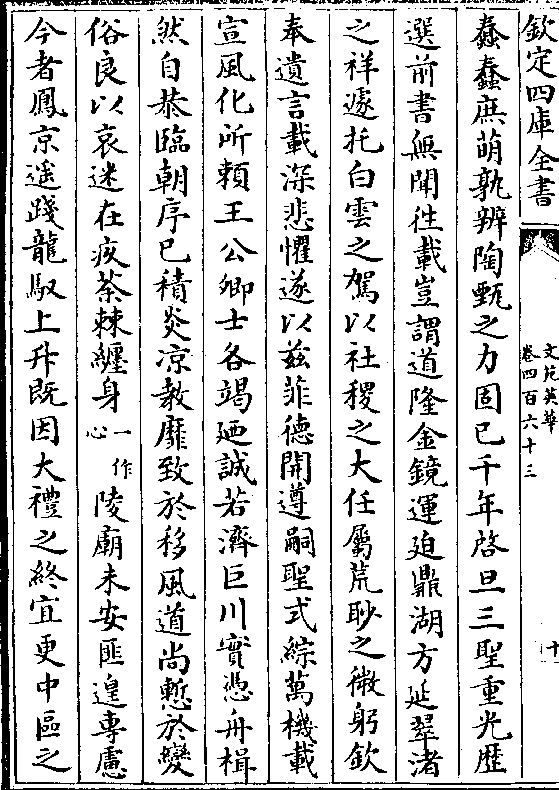 欽定四庫全書
文苑英華
卷四百六十三
十
蠢蠢庶萌孰辨陶甄之力固已千年啓旦三聖重光歴
選前書無聞徃載豈謂道隆金鏡運廹鼎湖方延翠渚
之祥遽托白雲之駕以社稷之大任屬荒眇之微躬欽
奉遺言載深悲懼遂以兹菲德開遵嗣聖式綜萬機載
宣風化所頼王公卿士各竭廼誠若濟巨川實憑舟楫
然自恭臨朝序已積炎凉教靡致於移風道尚慙於變
俗良以哀迷在疚荼棘纒身一作心陵廟未安匪遑專慮
今者鳳京遥踐龍馭上升既因大禮之終宜更中區之